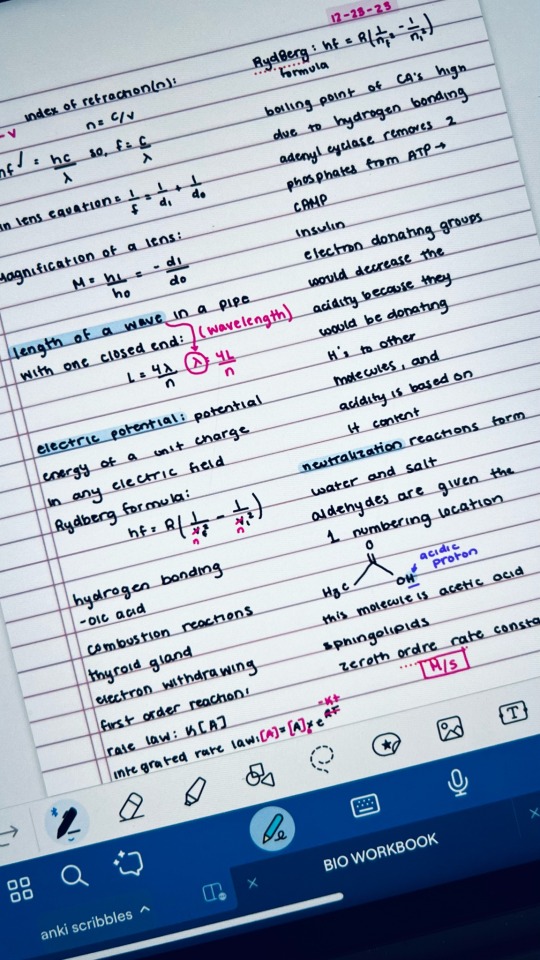 12-28-23
index of refraction(n):
n = c/v
-v
hf = hc/λ so, f = c/λ
in lens equation = 1/f = 1/di + 1/do
Magnification of a lens:
M = hi/ho = - di/do
length of a wave in a pipe
with one closed end: (wavelength)
L = 4λ/n λ = 4L/n
electric potential: potential
energy of a unit charge
in any electric field
Rydberg formula:
hf = R(1/nf² - 1/ni²)
hydrogen bonding
-oic acid
combustion reactions
thyroid gland
electron withdrawing
first order reaction:
rate law: K[A]
integrated rate law: [A] = [A]₀ x e^-Kt
RydBerg : hf = R(1/nf² - 1/ni²)
formula
boiling point of CA's high
due to hydrogen bonding
adenyl cyclase removes 2
phosphates from ATP →
CAMP
insulin
electron donating groups
would decrease the
acidity because they
would be donating
H's to other
molecules, and
acidity is based on
H content
neutralization reactions form
water and salt
aldehydes are given the
1 numbering location
O
acidic
proton
H₃C OH
this molecule is acetic acid
sphingolipids
zeroth ordre rate consta
M/s
T
BIO WORKBOOK
anki scribbles